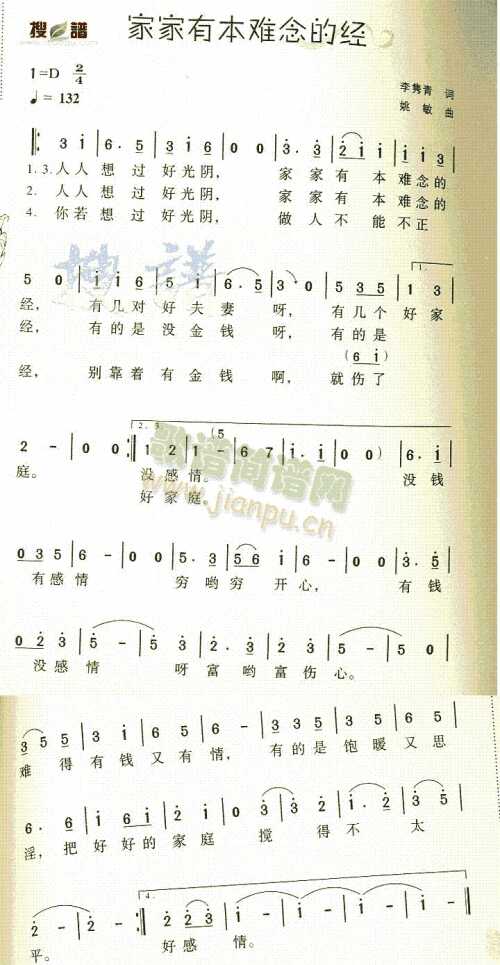 搜谱 家家有本难念的经
1=D 2/4
♩= 132
李隽青 词
姚敏 曲
3 i | 6. 5 | 3 i | 5 6 | 0 0 | 3. 3 | 2 i i | i i 3 |
1.3.人人 想 过 好光阴, 家 家 有 本 难念的
2.人人 想 过 好光阴, 家 家 有 本 难念的
4.你若 想 过 好光阴, 做 人 不 能 不正
1.
5 0 | i i 6 | 5 i 5 | 6. 5 | 3 0 | 0 5 | 5 3 5 | 1 3 |
经, 有几对 好夫妻 呀, 有几个 好家
经, 有的是 没金钱 呀, 有的是
(6 i)
经, 别靠着 有金钱 啊, 就伤了
2.3.
庭。 没感情。 没钱
好家庭。
歌谱简谱网
www.jianpu.cn
0 3 5 | 6 - | 0 0 | 5. 3 | 5 6 i | 6 - | 0 0 | 3. 5 |
有感情 穷哟穷 开心, 有钱
0 2 3 | 5 - | 5 3 | 2. 3 | 2 3 | 5 - | 5 0 |
没感情 呀富哟富伤心。
3 5 5 | 3 i | 6 5 | 3 5 | 6 3 3 | 3 5 | 6 5 6 |
难 得有钱又有情, 有的是饱暖又思
淫, 把好好的家庭 搅 得不 太
4.
平。 好感 情。